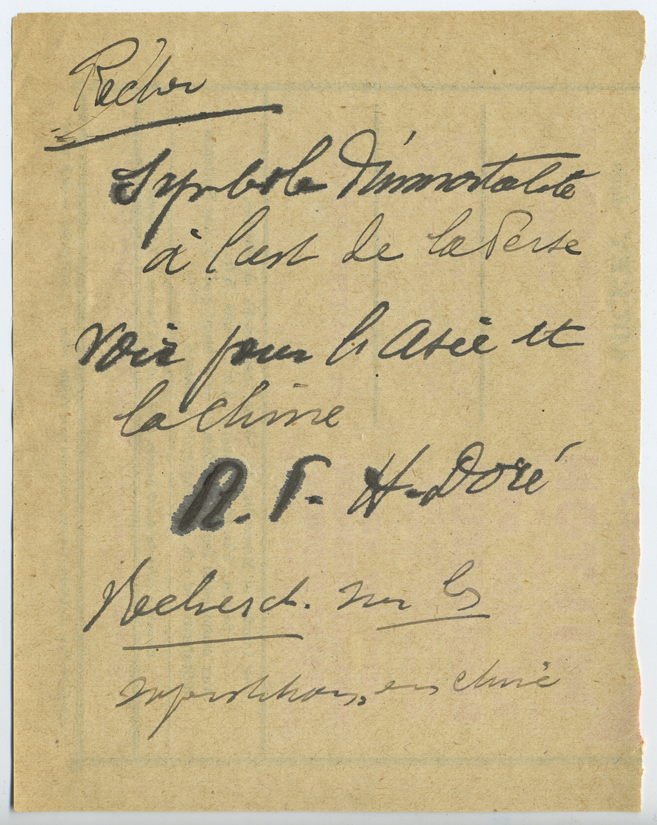 Recher
Symbole d'immortalité
à l'est de la Perse
Voir pour l'Asie et
la Chine
R. P. H. Doré
Recherch. sur les
superstitions en Chine